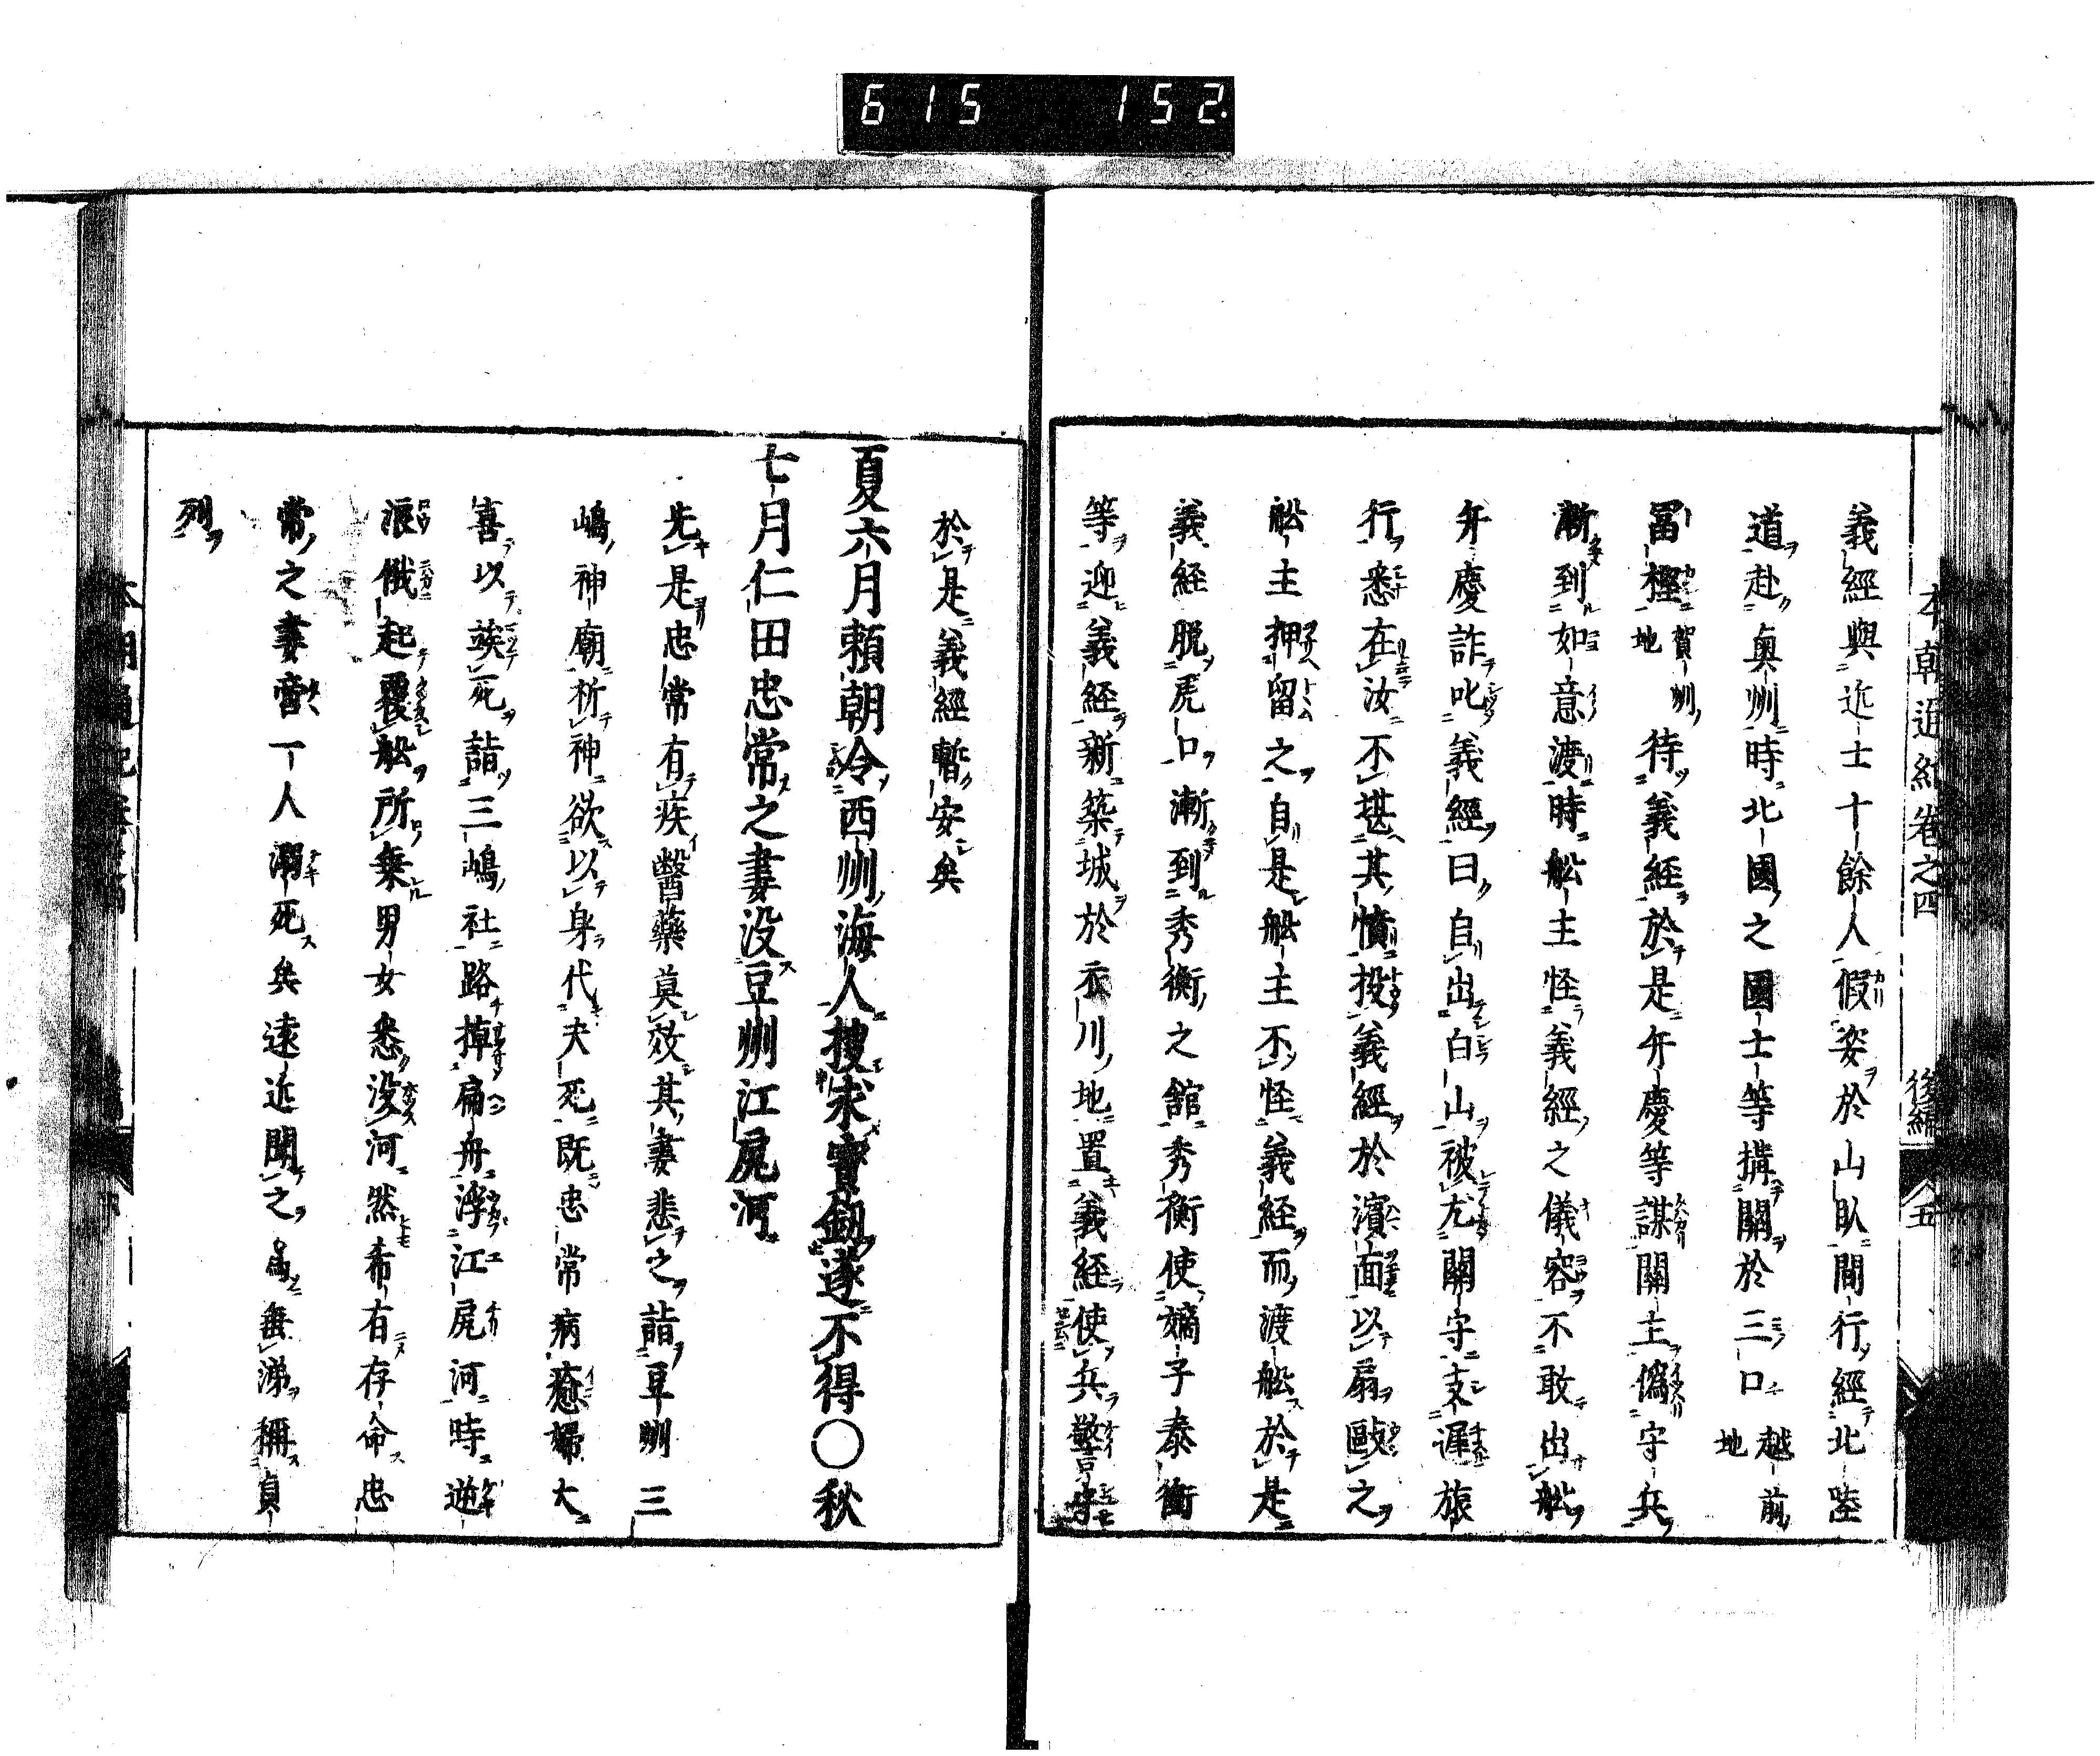 615 152.
本朝通紀卷之四 後編 五
義經與近士十餘人假姿於山臥間行經北陸
道赴奥州時北國之國士等搆關於三口越前地
冨樫賀州地待義経於是弁慶等謀關主僞守兵
漸到如意渡時舩主怪義經之儀容不敢出舩
弁慶詐叱義經曰自出白山被尤關守支遲旅
行悉在汝不堪其憤投義經於濱面以扇毆之
舩主押留之自是舩主不怪義経而渡舩於是
義経脱虎口漸到秀衡之舘秀衡使嫡子泰衡
等迎義経新築城於衣川地置義経使兵警
於是義經暫安矣
夏六月頼朝令西州海人捜求寳劔遂不得〇秋
七月仁田忠常之妻没豆州江尻河
先是忠常有疾醫藥莫效其妻悲之詣豆州三
嶋神廟祈神欲以身代夫死既忠常病癒婦大
喜以竢死詣三嶋社路掉扁舟浮江尻河時逆
浪俄起覆舩所乗男女悉没河然希有存命忠
常之妻耳一人溺死矣遠近聞之無涕稱貞
列